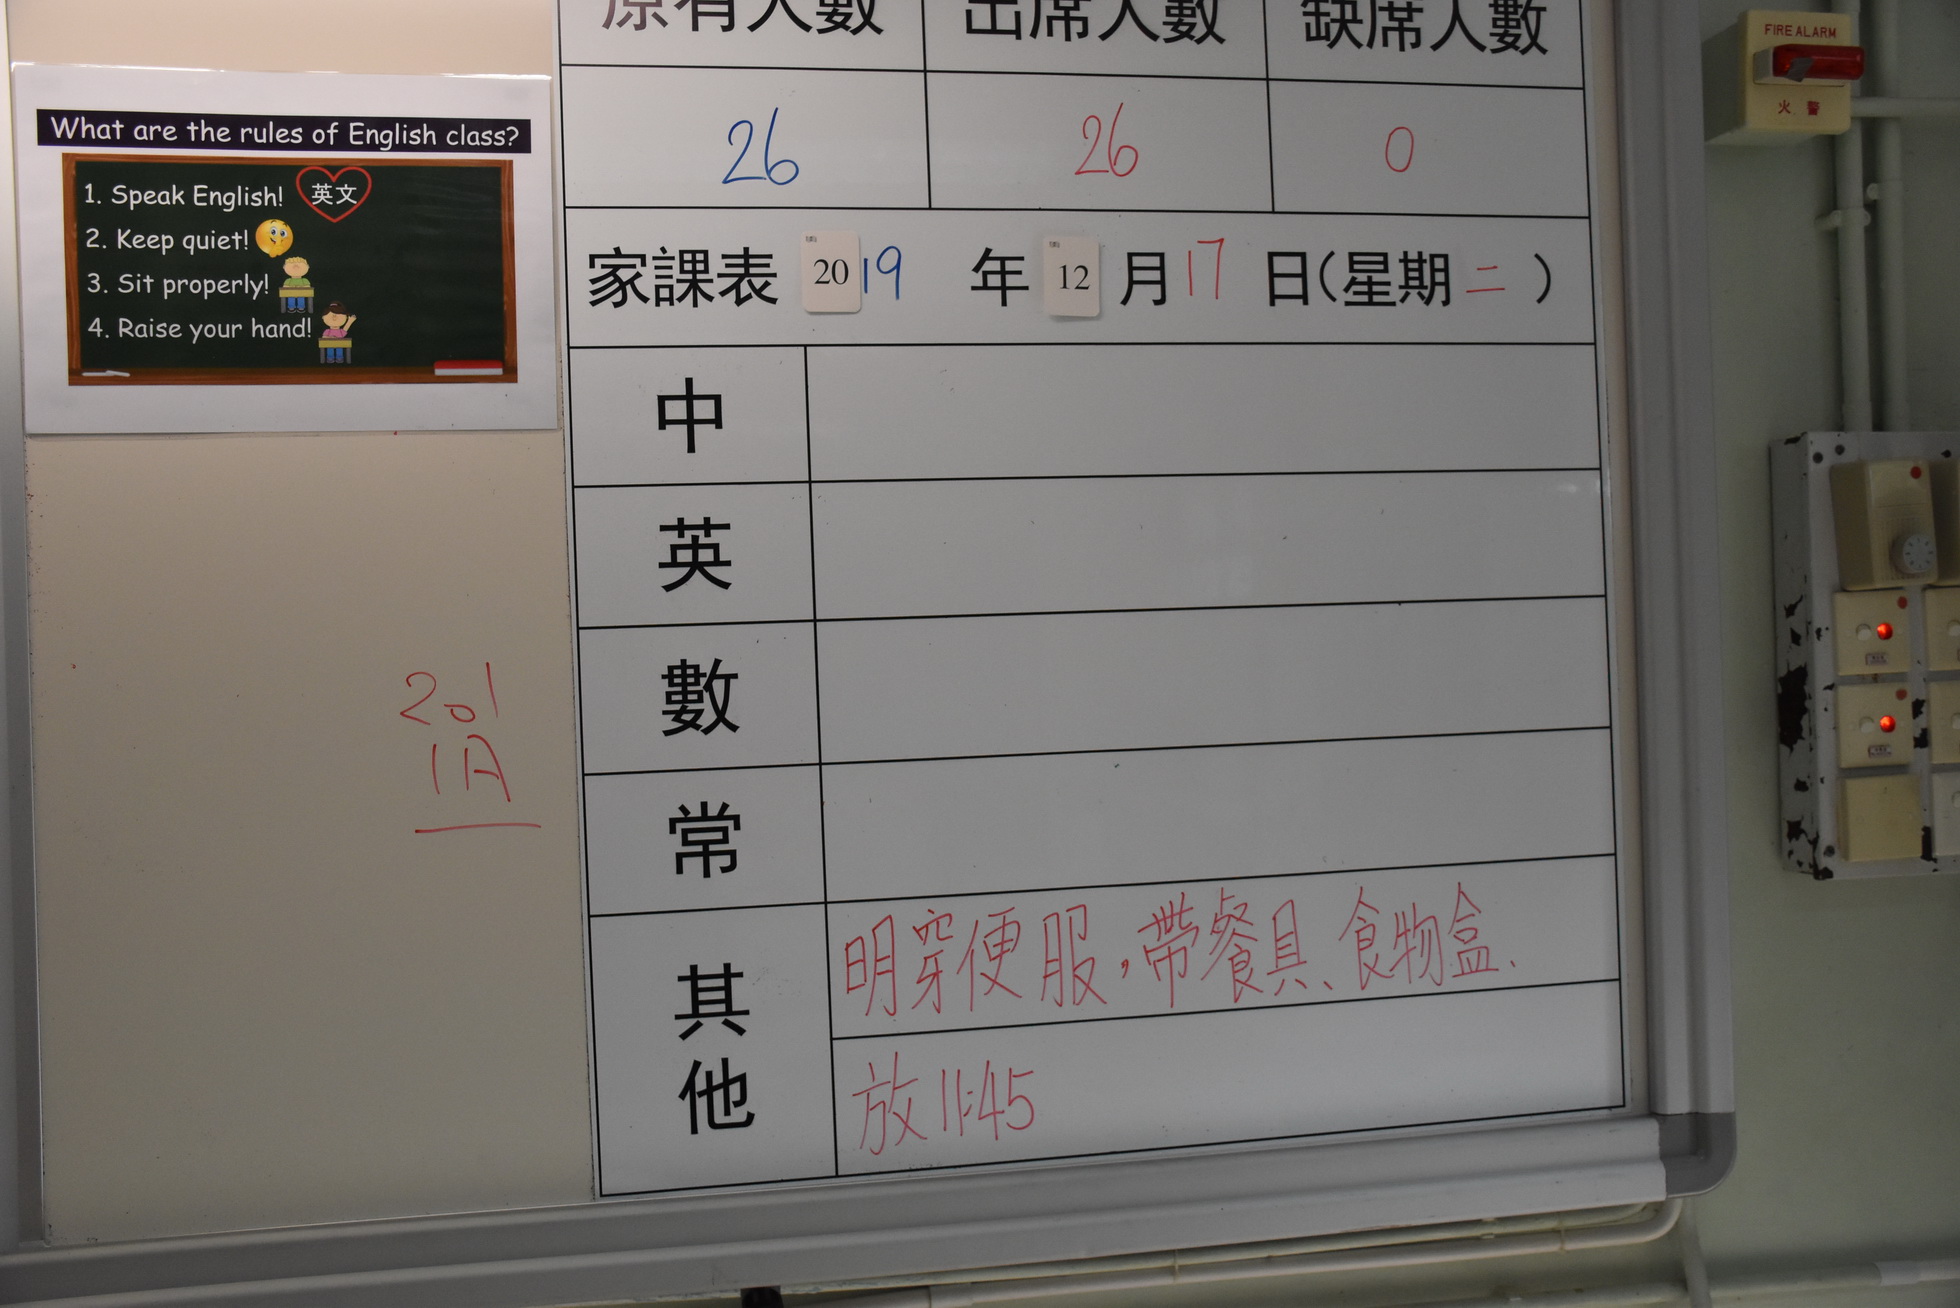 What are the rules of English class?
1. Speak English! 英文
2. Keep quiet!
3. Sit properly!
4. Raise your hand!
201
1A
原有人數 出席人數 缺席人數
26 26 0
家課表 2019 年 12 月 17 日(星期二)
中
英
數
常
其他
明穿便服，帶餐具、食物盒、
放11:45
FIRE ALARM
火 警